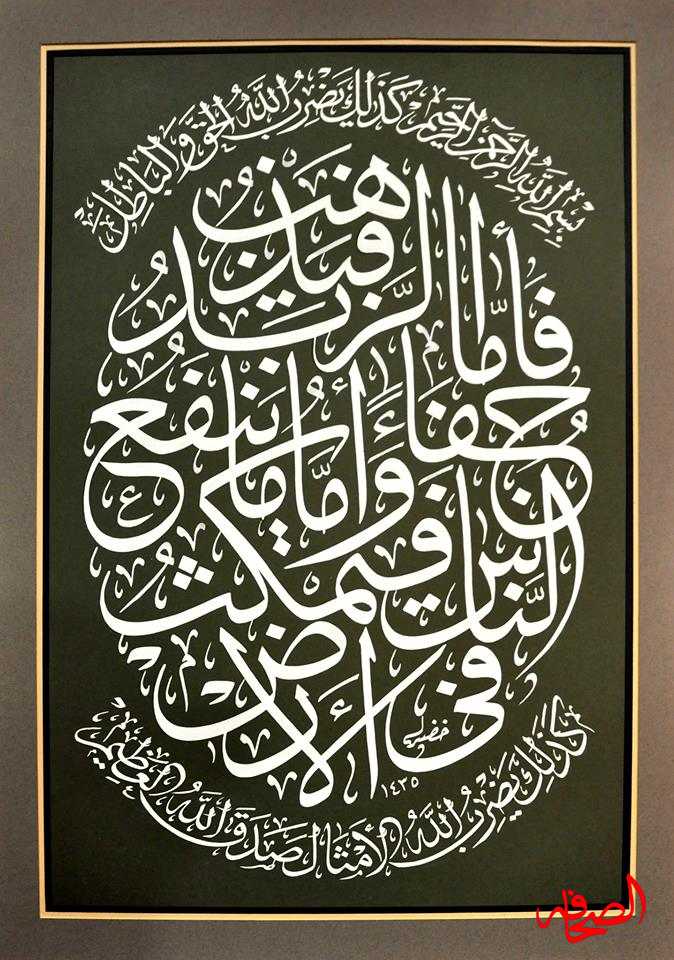 بِسْمِ اللَّهِ الرَّحْمَنِ الرَّحِيمِ كَذَلِكَ يَضْرِبُ اللَّهُ الْحَقَّ وَالْبَاطِلَ
فَأَمَّا الزَّبَدُ فَيَذْهَبُ
جُفَاءً وَأَمَّا مَا يَنْفَعُ
النَّاسَ فَيَمْكُثُ
فِي الْأَرْضِ
كَذَلِكَ يَضْرِبُ اللَّهُ الْأَمْثَالَ صَدَقَ اللَّهُ الْعَظِيمُ
١٤٣٥
الصحافة